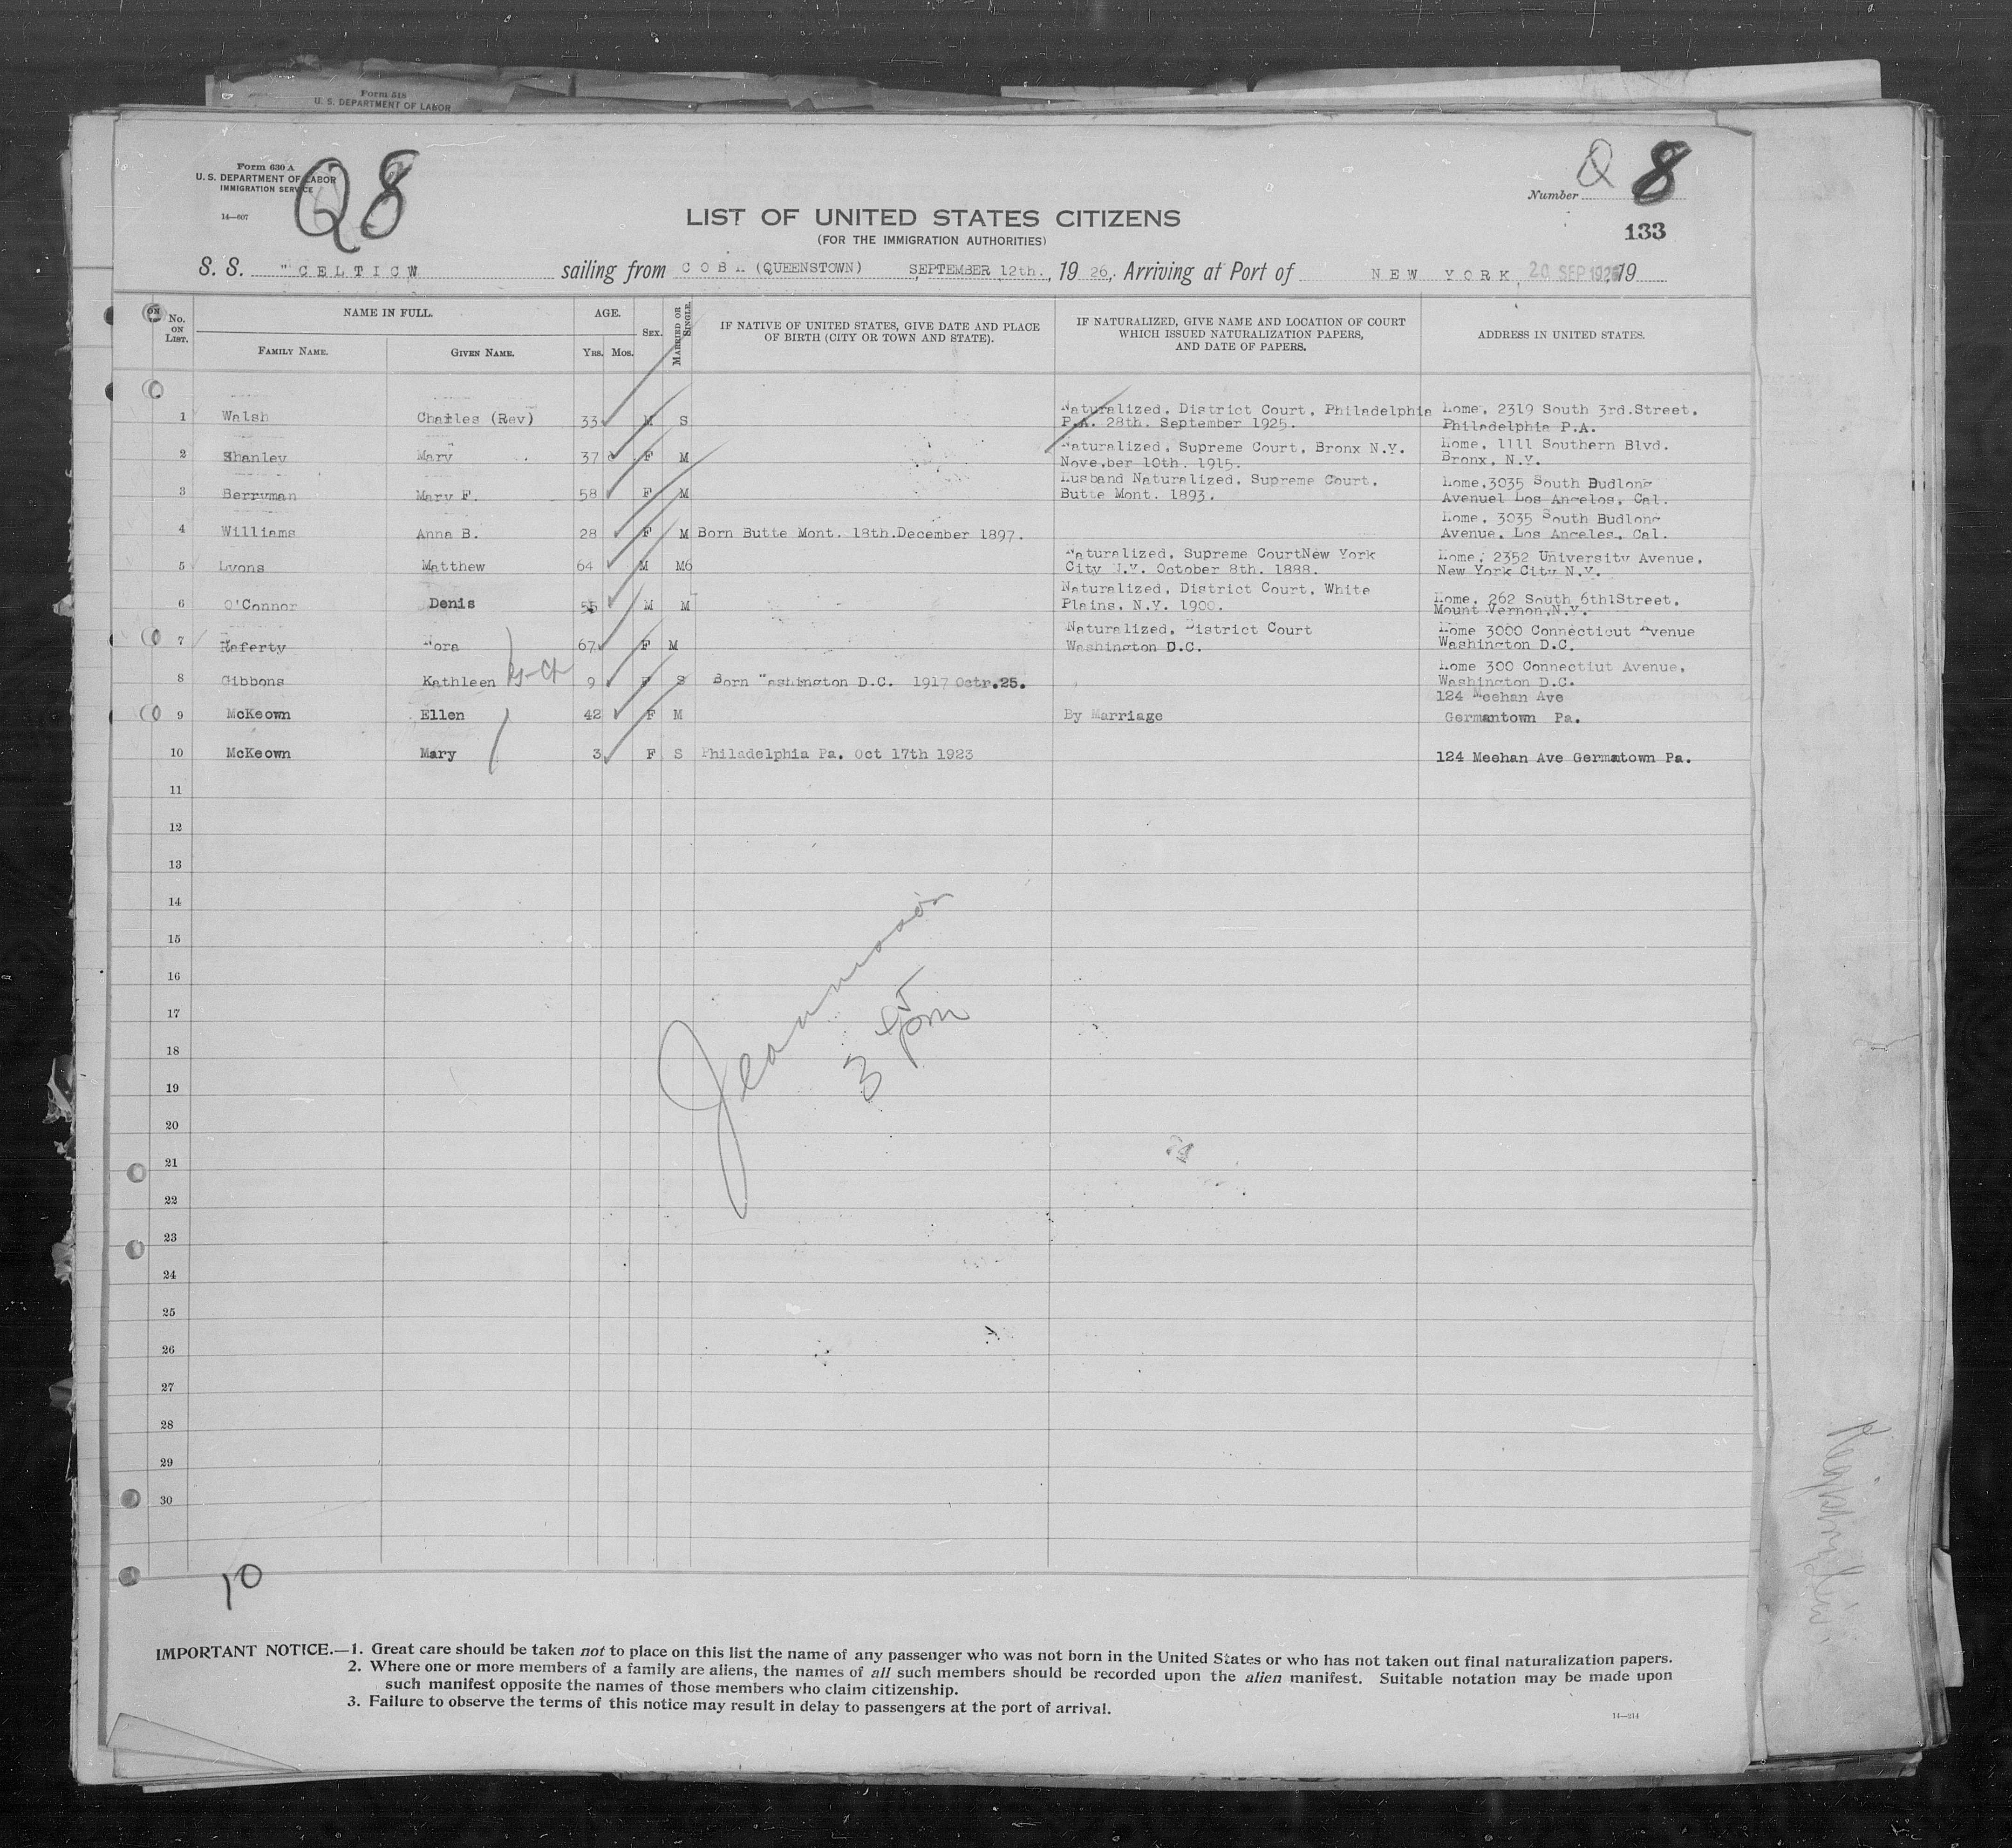 Form 518
U. S. DEPARTMENT OF LABOR
Form 630 A
U. S. DEPARTMENT OF LABOR
IMMIGRATION SERVICE
14—607
Q8
Number Q 8
133
LIST OF UNITED STATES CITIZENS
(FOR THE IMMIGRATION AUTHORITIES)
S. S. "CELTICW sailing from COBH (QUEENSTOWN) SEPTEMBER 12th., 19 26, Arriving at Port of NEW YORK, 20 SEP 1926, 19
No. ON LIST. NAME IN FULL. AGE. SEX. MARRIED OR SINGLE. IF NATIVE OF UNITED STATES, GIVE DATE AND PLACE OF BIRTH (CITY OR TOWN AND STATE). IF NATURALIZED, GIVE NAME AND LOCATION OF COURT WHICH ISSUED NATURALIZATION PAPERS, AND DATE OF PAPERS. ADDRESS IN UNITED STATES.
FAMILY NAME. GIVEN NAME. YRS. MOS.
1 Walsh Charles (Rev) 33 M S Naturalized, District Court, Philadelphia P.A. 28th. September 1925. Home, 2319 South 3rd.Street, Philadelphia P.A.
2 Shanley Mary 37 F M Naturalized, Supreme Court, Bronx N.Y. November 10th. 1915. Home, 1111 Southern Blvd. Bronx, N.Y.
3 Berryman Mary F. 58 F M Husband Naturalized, Supreme Court, Butte Mont. 1893. Home,3035 South Budlong Avenuel Los Angelos, Cal.
4 Williams Anna B. 28 F M Born Butte Mont. 18th.December 1897. Home, 3035 South Budlong Avenue, Los Angeles, Cal.
5 Lyons Matthew 64 M M6 Naturalized, Supreme CourtNew York City N.Y. October 8th. 1888. Home, 2352 University Avenue, New York City N.Y.
6 O'Connor Denis 55 M M Naturalized, District Court, White Plains, N.Y. 1900. Home, 262 South 6thlStreet, Mount Vernon,N.Y.
7 Raferty Nora 67 F M Naturalized, District Court Washington D.C. Home 3000 Connecticut Avenue Washington D.C.
8 Gibbons Kathleen 9 F S Born Washington D.C. 1917 Octr.25. Home 300 Connectiut Avenue, Washington D.C.
9 McKeown Ellen 42 F M By Marriage 124 Meehan Ave Germantown Pa.
10 McKeown Mary 3 F S Philadelphia Pa. Oct 17th 1923 124 Meehan Ave Germatown Pa.
11
12
13
14
15
16
17
18
19
20
21
22
23
24
25
26
27
28
29
30
3 pm
10
IMPORTANT NOTICE.—1. Great care should be taken not to place on this list the name of any passenger who was not born in the United States or who has not taken out final naturalization papers.
2. Where one or more members of a family are aliens, the names of all such members should be recorded upon the alien manifest. Suitable notation may be made upon
such manifest opposite the names of those members who claim citizenship.
3. Failure to observe the terms of this notice may result in delay to passengers at the port of arrival.
14—214